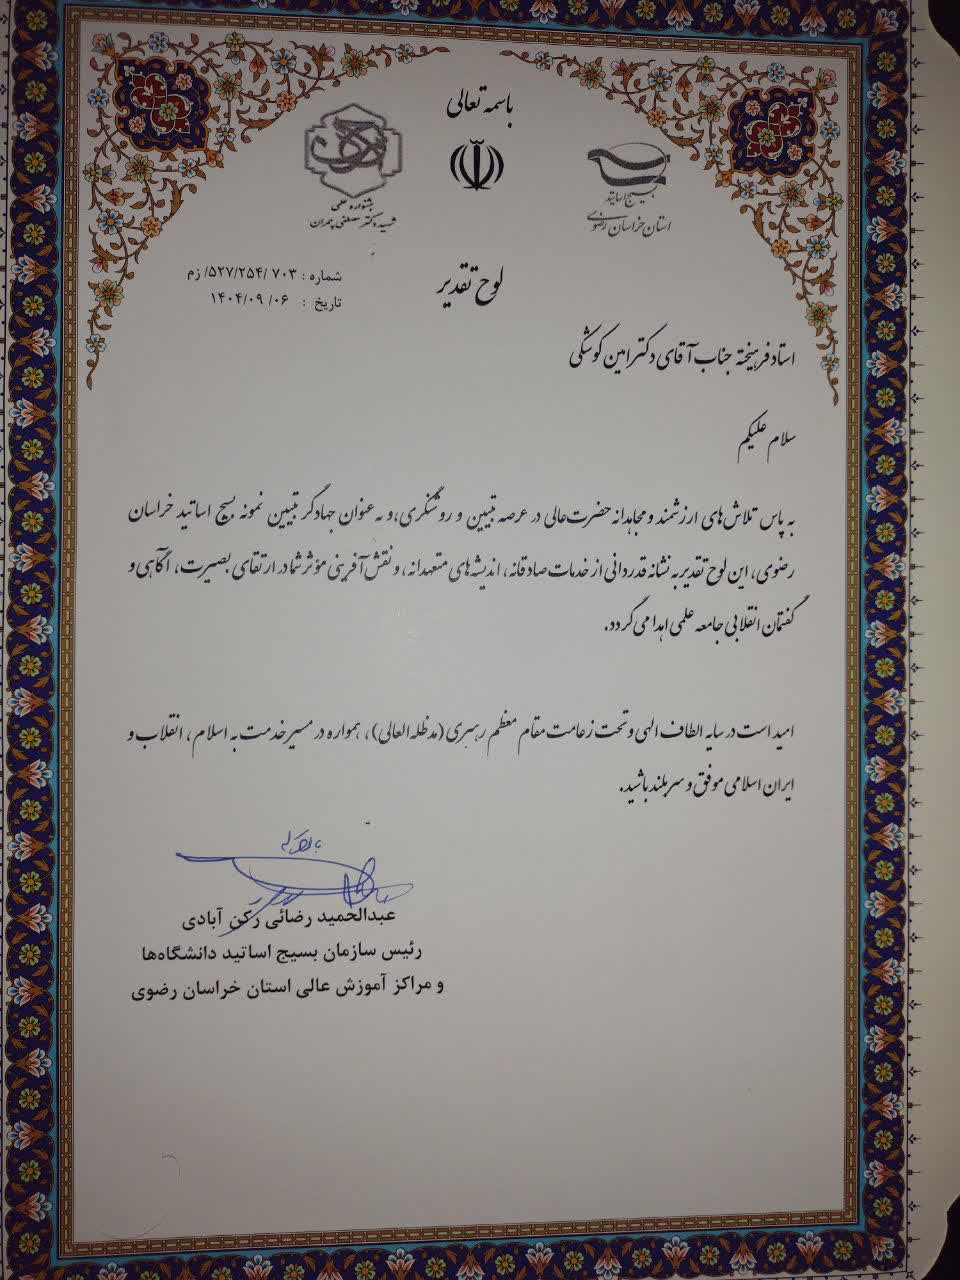 باسمه تعالی
بسیج اساتید
استان خراسان رضوی
جشنواره علمی
شهید دکتر مصطفی چمران
لوح تقدیر
شماره : ۷۰۳ /۵۲۷/۲۵۴/ زم
تاریخ : ۱۴۰۴/۰۹/۰۶
استاد فرهیخته جناب آقای دکتر امین کوشکی
سلام علیکم
به پاس تلاش‌های ارزشمند و مجاهدانه حضرت‌عالی در عرصه تبیین و روشنگری،و به عنوان جهادگر تبیین نمونه بسیج اساتید خراسان
رضوی، این لوح تقدیر به نشانه قدردانی از خدمات صادقانه، اندیشه‌های متعهدانه، و نقش آفرینی مؤثر شما در ارتقای بصیرت، آگاهی و
گفتمان انقلابی جامعه علمی اهدا می گردد.
امید است در سایه الطاف الهی و تحت زعامت مقام معظم رهبری (مدظله العالی)، همواره در مسیر خدمت به اسلام، انقلاب و
ایران اسلامی موفق و سربلند باشید.
عبدالحمید رضائی رکن آبادی
رئیس سازمان بسیج اساتید دانشگاه‌ها
و مراکز آموزش عالی استان خراسان رضوی